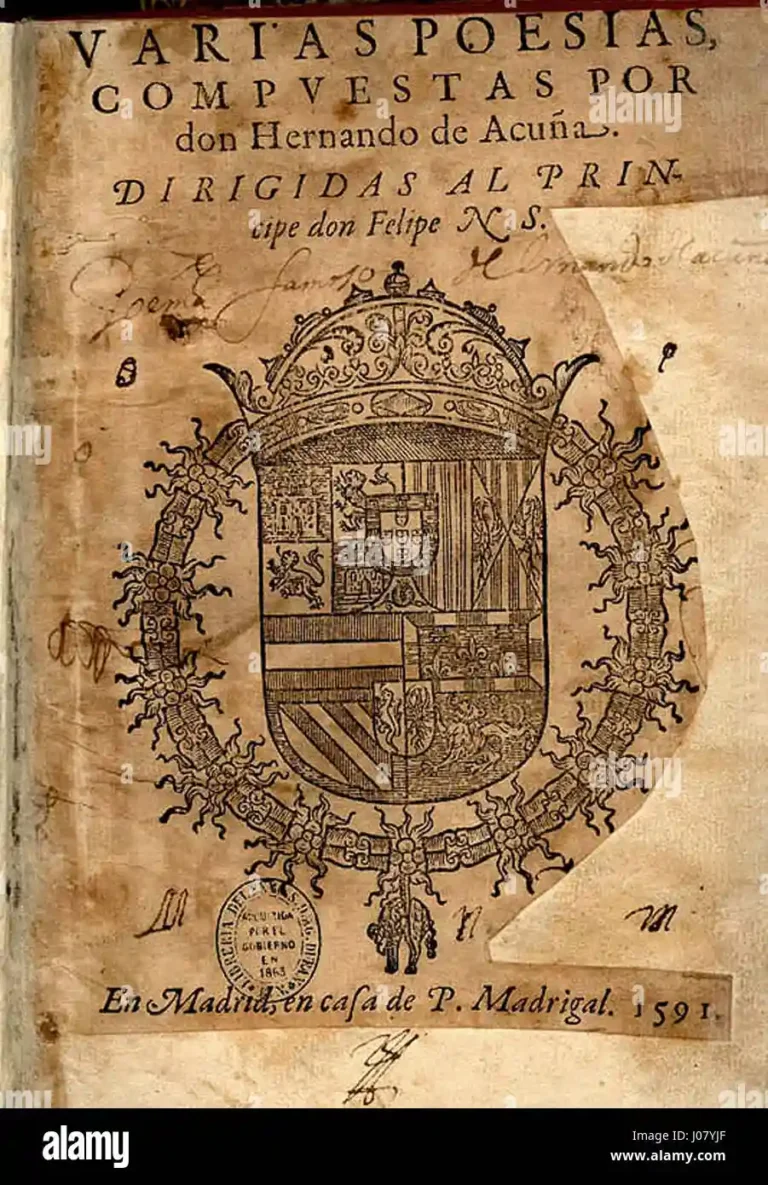 VARIAS POESIAS,
COMPVESTAS POR
don Hernando de Acuña.
DIRIGIDAS AL PRIN-
cipe don Felipe N. S.
Poema famoso Hernando Acuña
M N M
ADQUIRIDA
POR EL
GOBIERNO
EN
1863
En Madrid, en casa de P. Madrigal. 1591.
alamy
alamy
alamy
alamy
alamy
alamy
alamy
Image ID: J07YJF
www.alamy.com